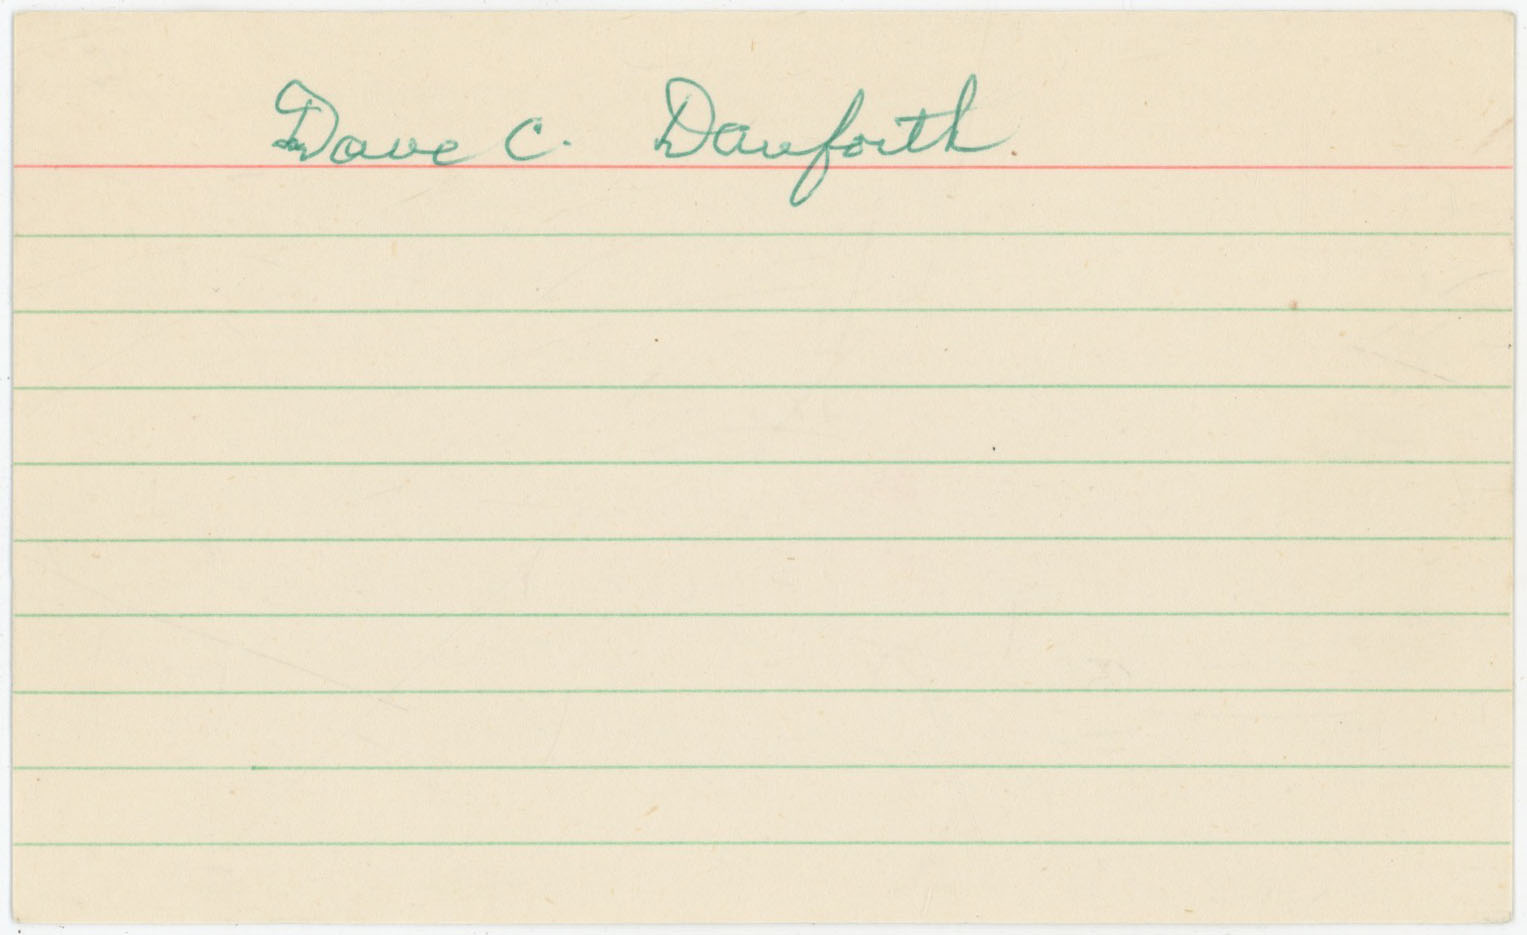 Dave C. Danforth.